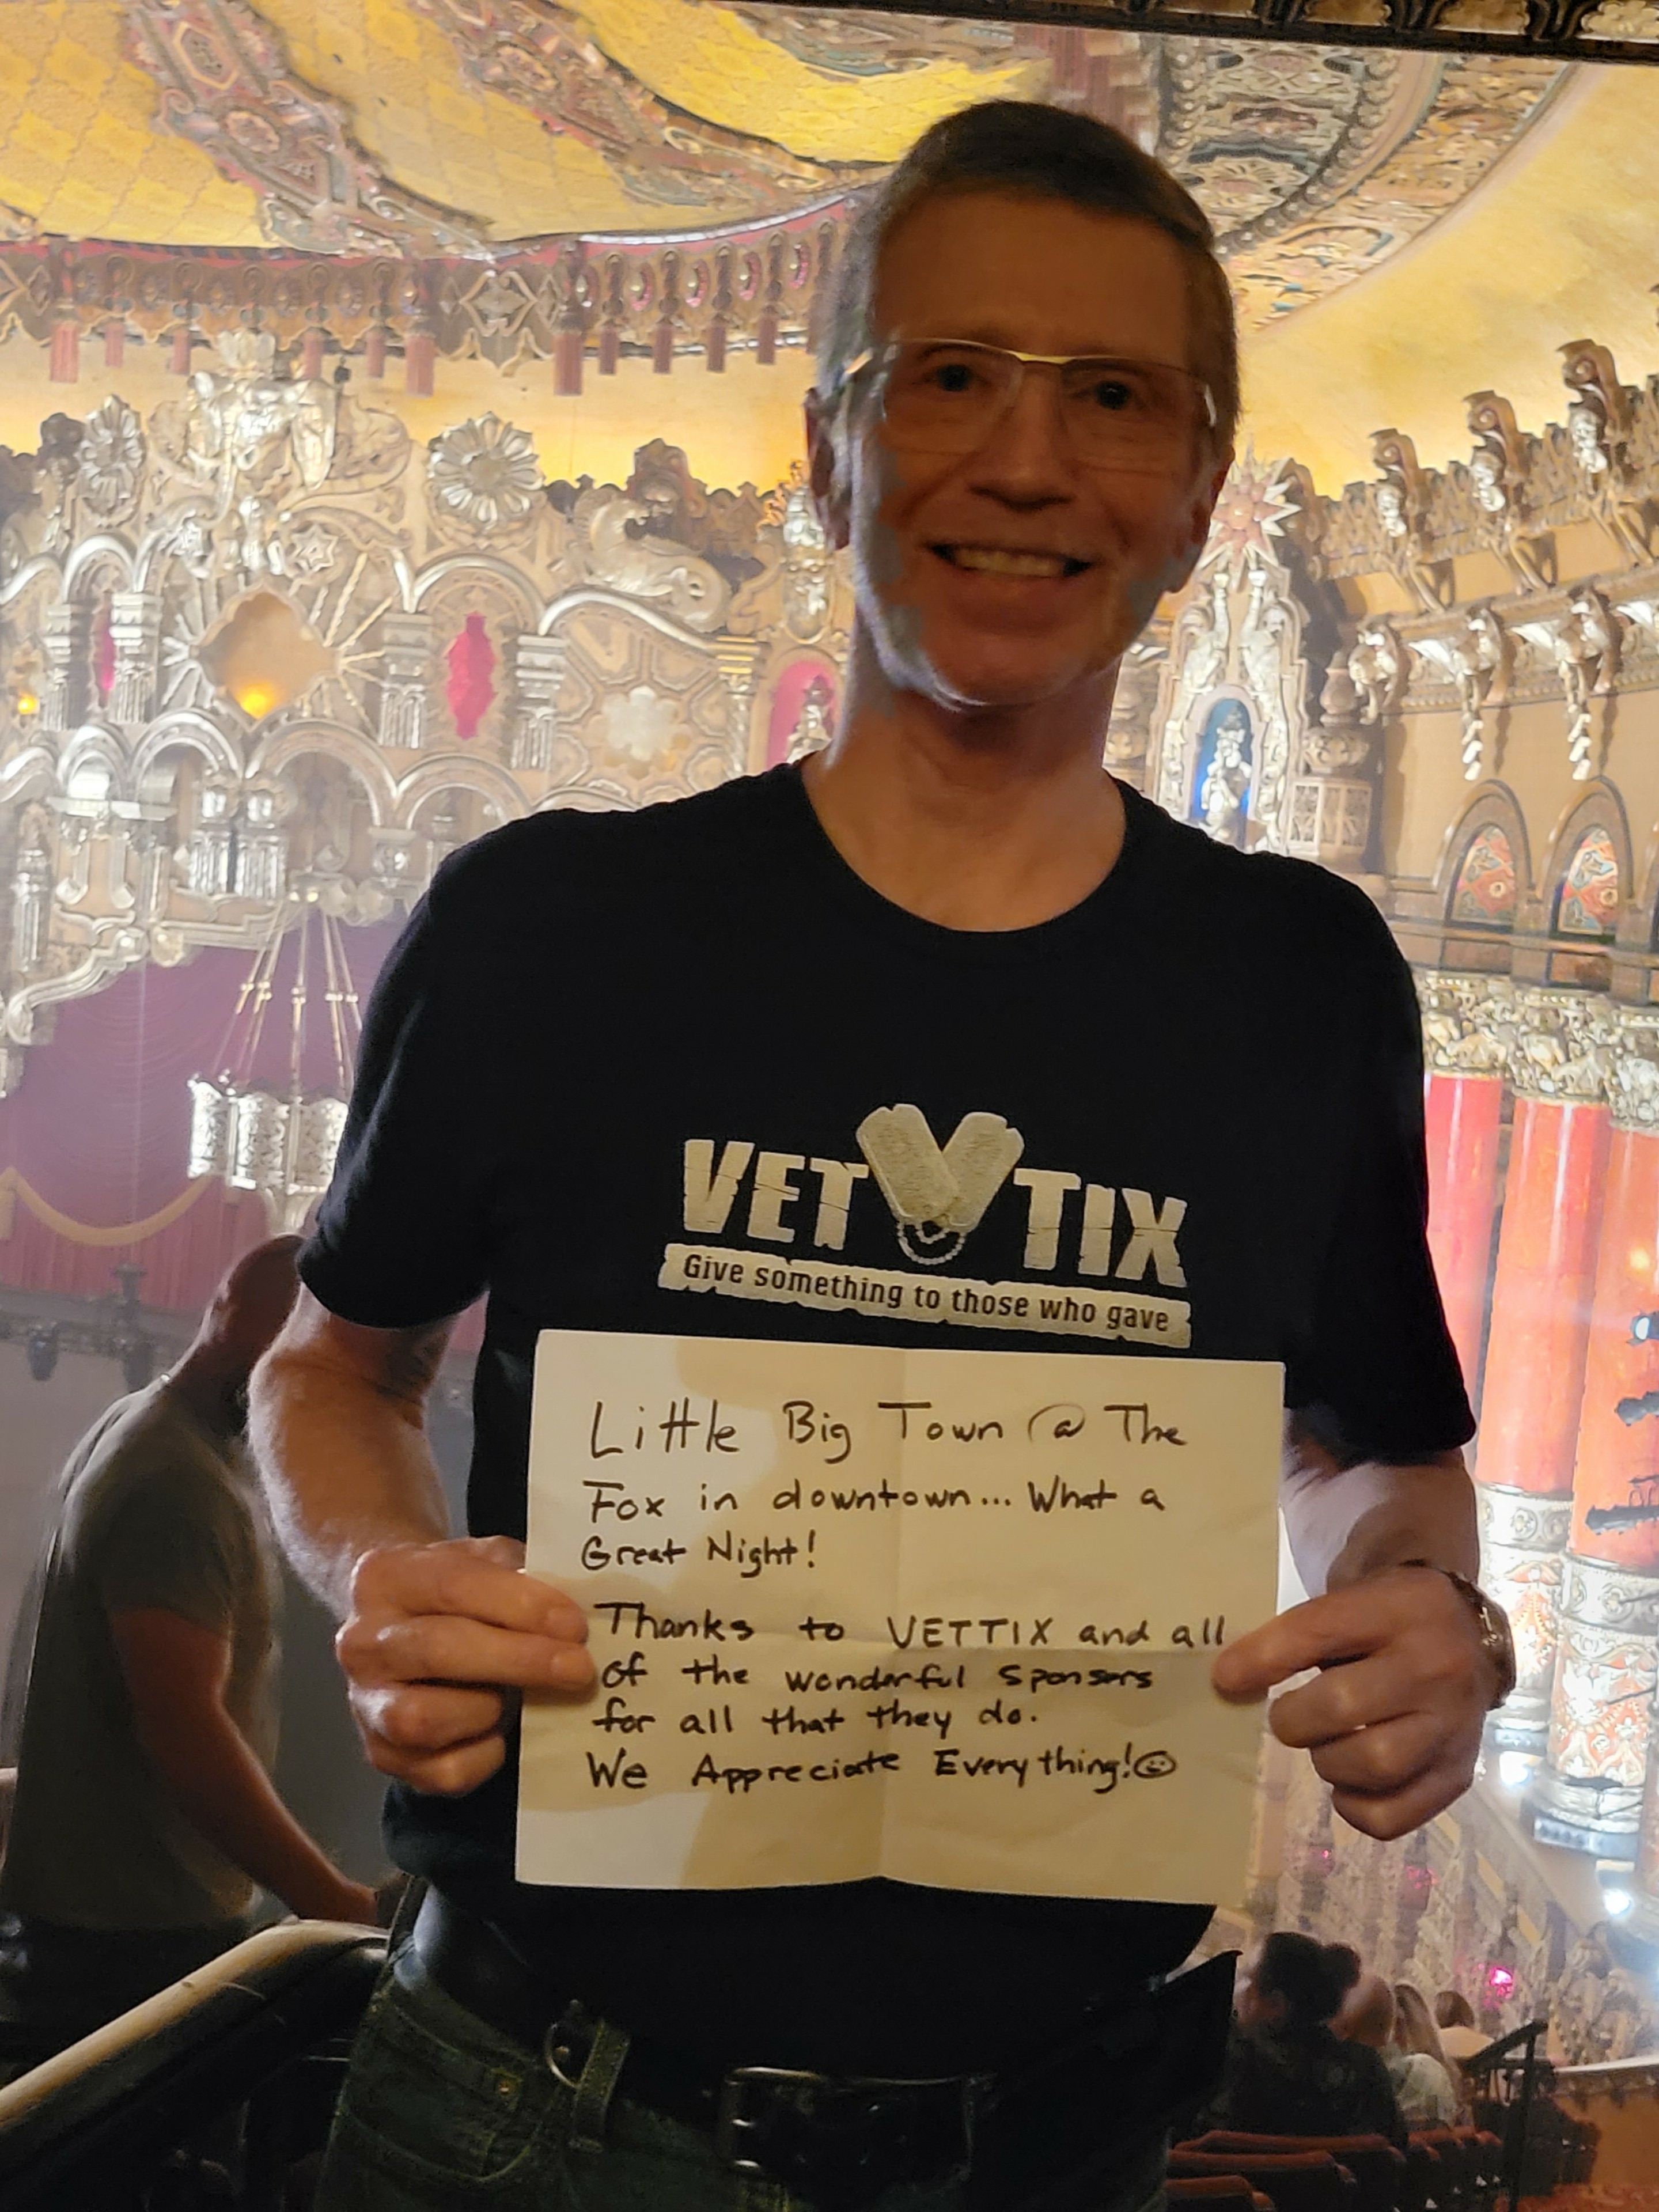 VET TIX
Give something to those who gave
Little Big Town @ The
Fox in downtown... What a
Great Night!
Thanks to VETTIX and all
of the wonderful Sponsors
for all that they do.
We Appreciate Everything!☺